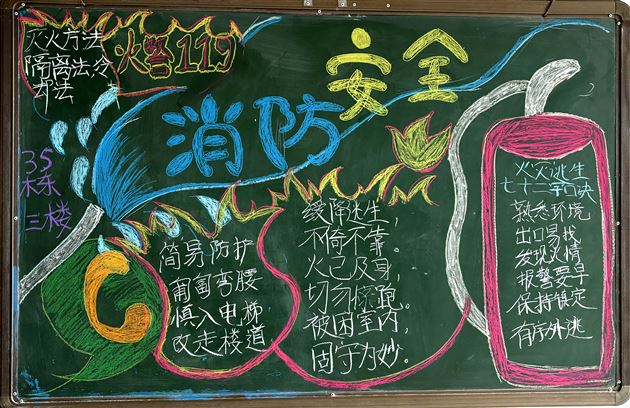 灭火方法
隔离法冷
却法
火警119
消防安全
35
栋
三楼
简易防护
匍匐弯腰
慎入电梯
改走楼道
缓降逃生，
不倚不靠。
火已及身，
切勿惊跑。
被困室内，
固守为妙。
火灾逃生
七十二字口诀
熟悉环境
出口易找
发现火情
报警要早
保持镇定
有序外逃